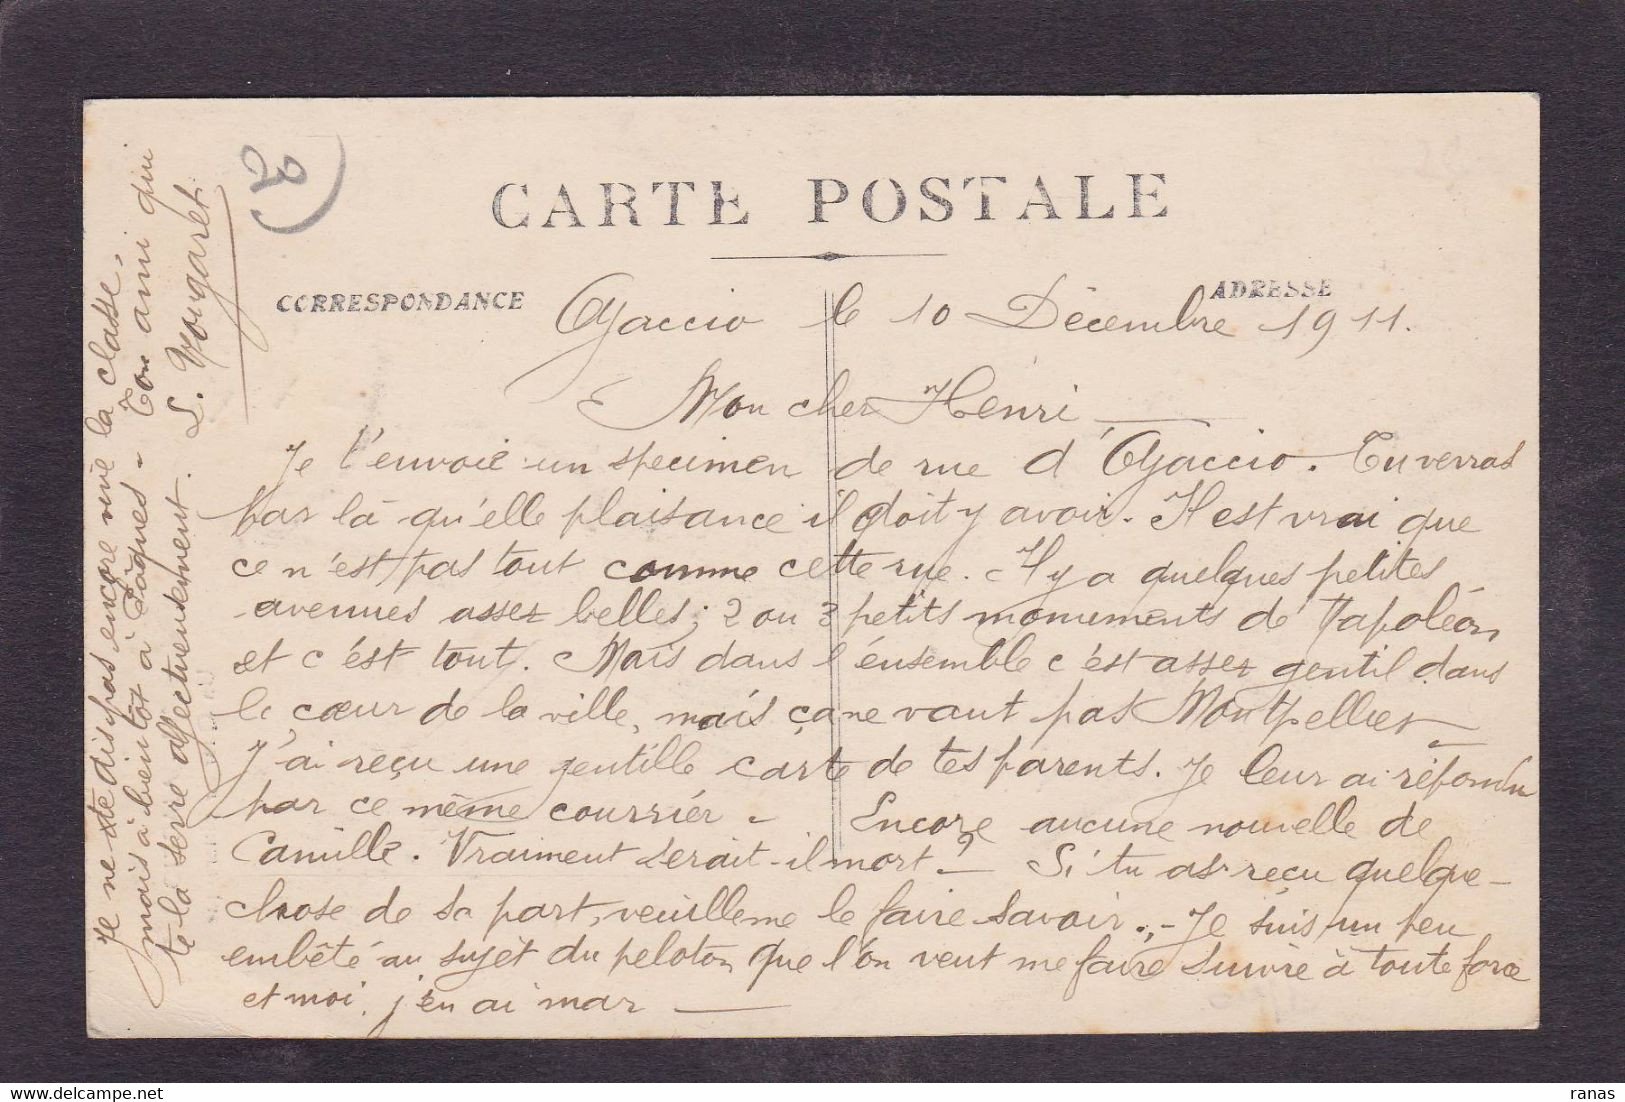 CARTE POSTALE
CORRESPONDANCE
ADRESSE
20
Ajaccio le 10 Décembre 1911.
Mon cher Henri
Je t'envoie un specimen de rue d'Ajaccio. Tu verras
par là qu'elle plaisance il doit y avoir. Il est vrai que
ce n'est pas tout comme cette rue. Il y a quelques petites
avenues assez belles; 2 ou 3 petits monuments de Napoléon
et c'est tout. Mais dans l'ensemble c'est assez gentil dans
le cœur de la ville, mais ça ne vaut pas Montpellier
J'ai reçu une gentille carte de tes parents. Je leur ai répondu
par ce même courrier - Encore aucune nouvelle de
Camille. Vraiment serait-il mort? - Si tu as reçu quelque-
chose de sa part, veuilleme le faire savoir.,- Je suis un peu
embêté au sujet du peloton que l'on veut me faire suivre à toute force
et moi j'en ai mar
Je ne te dis pas encore vive la classe,
mais à bientôt à Pâques - Ton ami qui
te la serre affectueusement.
L. Mougaret
delcampe.net
ranas